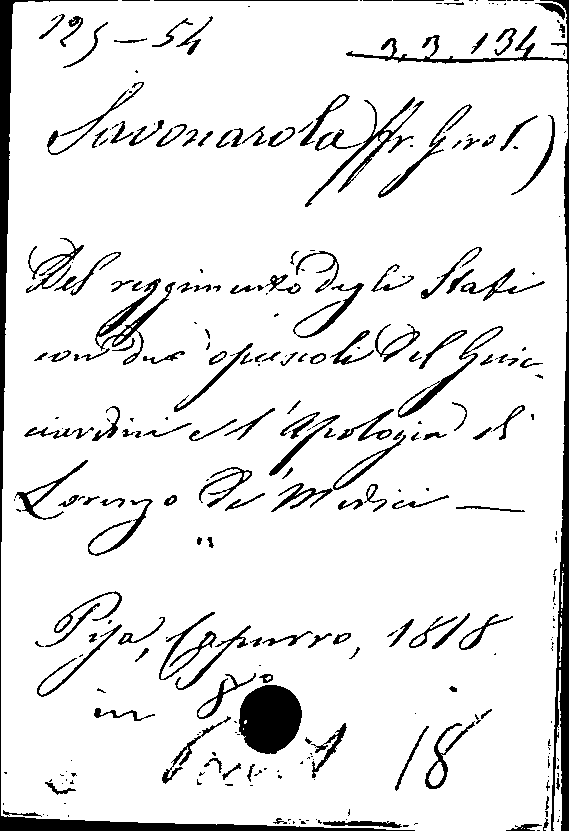 125-54 3.3.134
Savonarola (fr. Girol.)
Del reggimento degli Stati
con due opuscoli del Guic-
ciardini e l'Apologia di
Lorenzo de' Medici —
Pisa, Capurro, 1818
in 8°
18